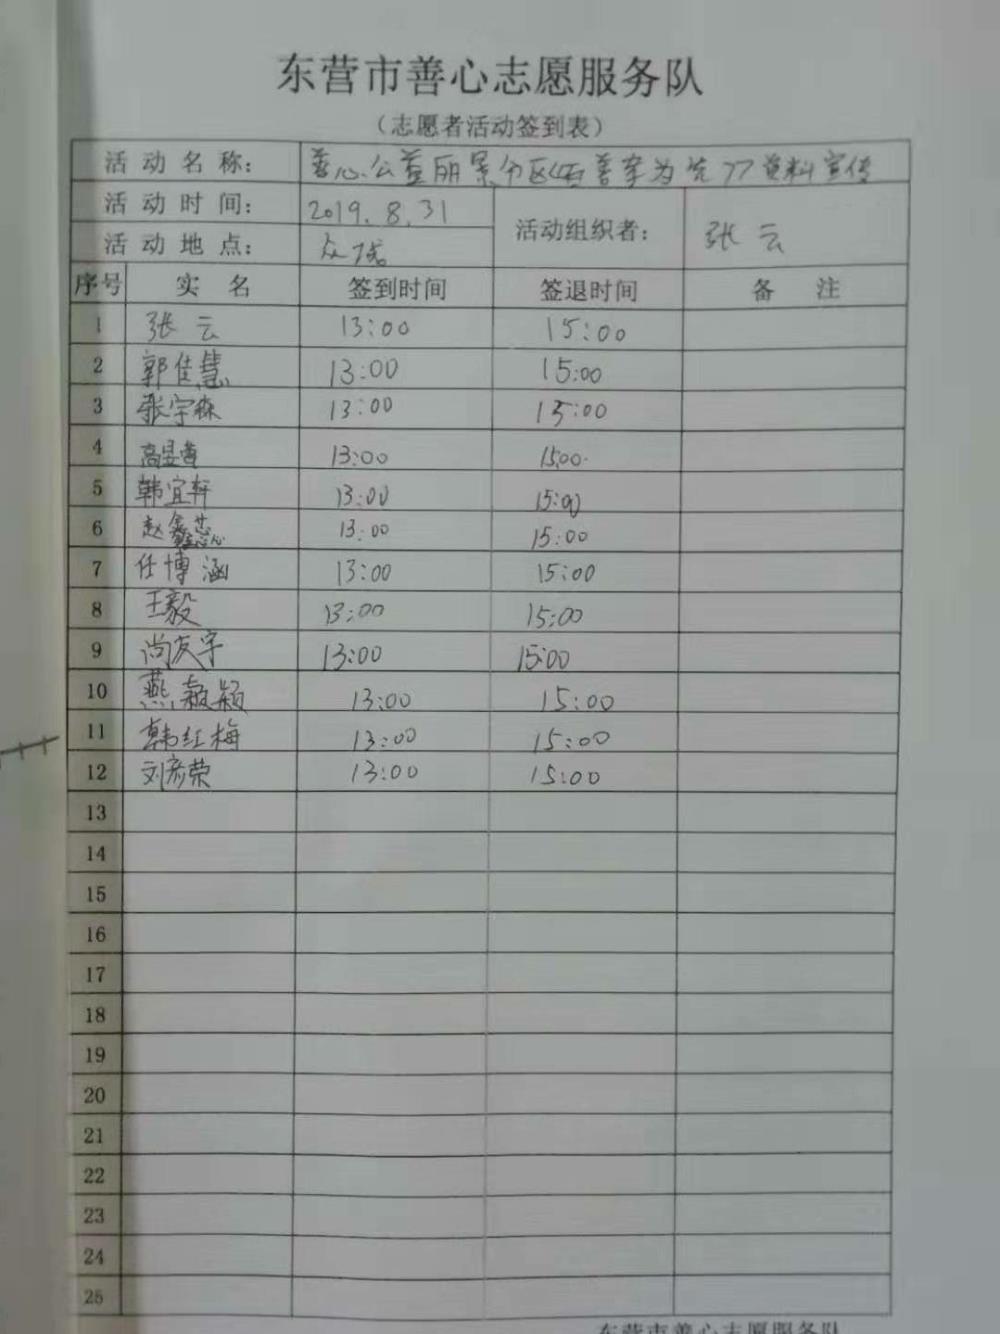 东营市善心志愿服务队
（志愿者活动签到表）
活动名称： 善心公益丽景分区 善孝为先77资料宣传
活动时间： 2019.8.31 活动组织者： 张云
活动地点： 众成
序号 实名 签到时间 签退时间 备注
1 张云 13:00 15:00
2 郭佳慧 13:00 15:00
3 张宇森 13:00 15:00
4 高昱 13:00 15:00
5 韩宜轩 13:00 15:00
6 赵鑫蕊 13:00 15:00
7 任博涵 13:00 15:00
8 王毅 13:00 15:00
9 尚友宇 13:00 15:00
10 燕颖颖 13:00 15:00
11 韩红梅 13:00 15:00
12 刘彦荣 13:00 15:00
13
14
15
16
17
18
19
20
21
22
23
24
25
东营市善心志愿服务队